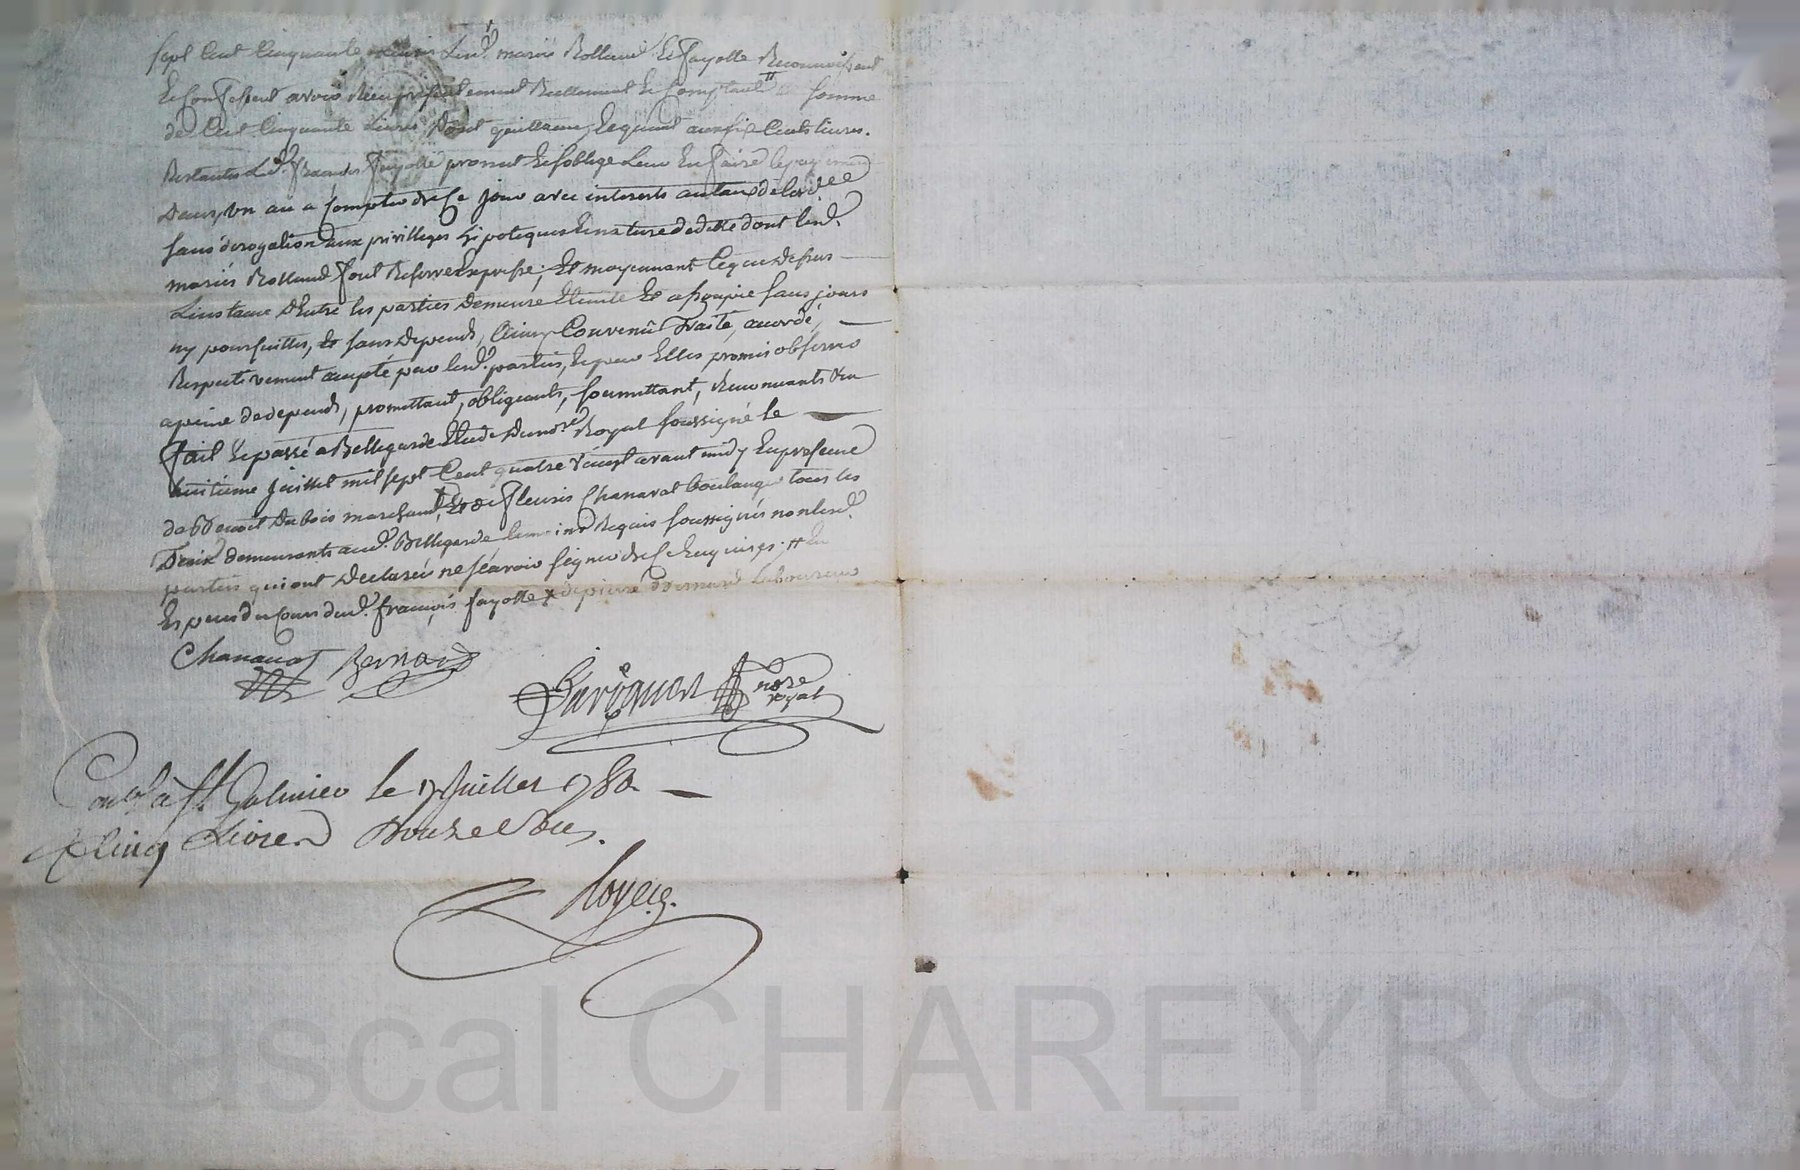 sept Cent Cinquante Livres Lesd. mariés Rolland Et fayolle Reconnoissent
Et Confessent avoir Reçu presentement Reellement Et Comptant la somme
de Cent Cinquante Livres Dont quittance, Et quant aux six Cents livres
Restantes Led. francois fayolle promet Et soblige Leur En faire le payement
Dans un an a Compter de Ce jour avec interests au taux de
sans derogation aux privilleges Hipoteques Et nature de dette dont lesd.
mariés Rolland font Reserve Expresse; Et moyennant Ce que Dessus
Linstance Entre les parties Demeure Eteinte Et assoupie sans jours
ny poursuittes, Et sans Depends, Convenû Traité, accordé,
Respectivement accepté par lesd. parties, Et par Elles promis observer
a peine de depends, promettant, obligeants, soumettant, Renonçants &a
fait Et passé a Bellegarde Etude Du no.re Royal soussigné le
huitieme juillet mil sept Cent quatre vingt avant midy En presence
de Benoit Dubois marchand, Et de fleuris Chanavat boulanger tous les
Deux demeurants aud. Bellegarde temoins Requis soussignés non lesd.
parties qui ont Declaré ne sçavoir signer de Ce Enquises; # En
En presence dud. françois fayolle & de pierre Bernard Laboureur
Chanavat Bernard
no.re royal
Con.lé à St Galmier le 17 Juillet 1780
R Cinq Livres Douze sous.